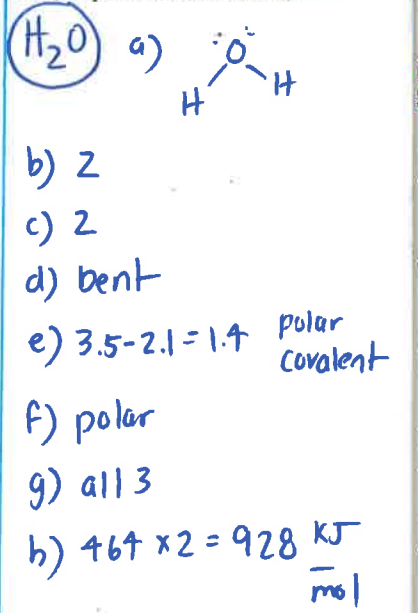 H₂O a) :Ö
H H
b) 2
c) 2
d) bent
e) 3.5-2.1 = 1.4 polar covalent
f) polar
g) all 3
h) 464 x 2 = 928 KJ/mol